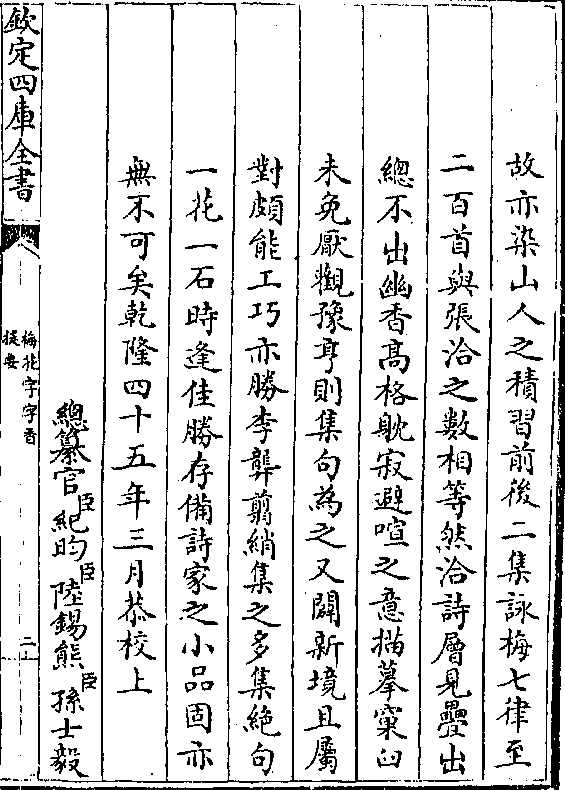 故亦染山人之積習前後二集詠梅七律至
二百首與張洽之數相等然洽詩層見疊出
總不出幽香高格躭寂避喧之意描摹窠臼
未免厭觀豫亨則集句為之又闢新境且屬
對頗能工巧亦勝李龏翦綃集之多集絶句
一花一石時逢佳勝存備詩家之小品固亦
無不可矣乾隆四十五年三月恭校上
總纂官臣紀昀臣陸錫熊臣孫士毅
欽定四庫全書
梅花字字香
提要
二